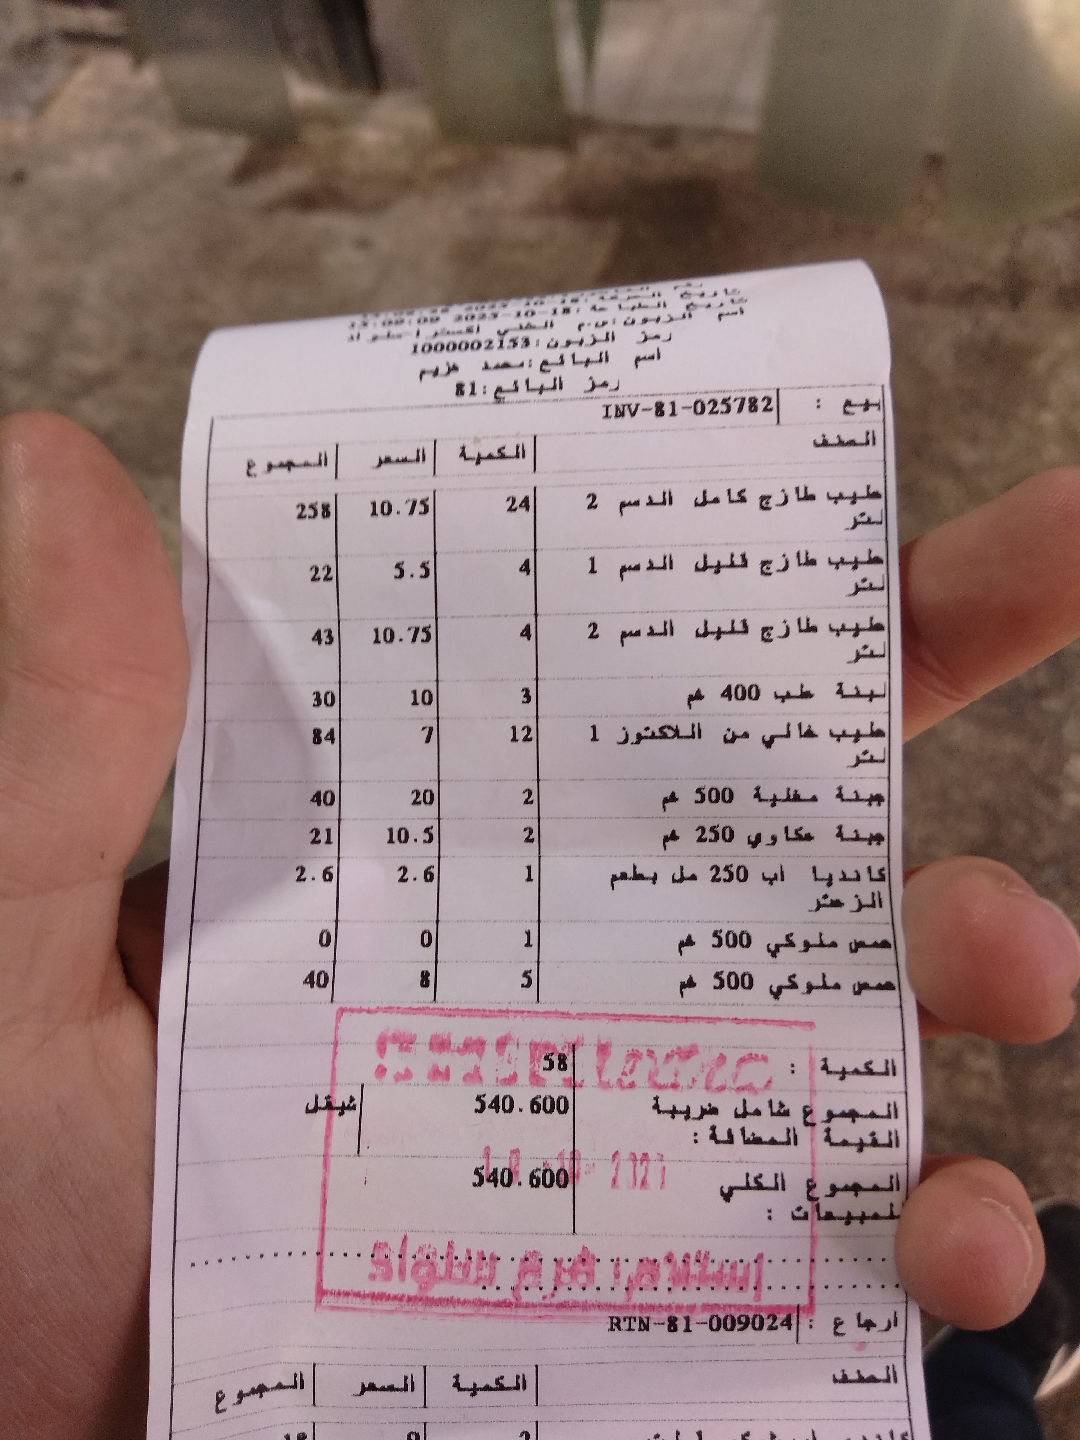 تاريخ الطباعة: 2023-10-18 13:09:09
اسم الزبون:س.م الشني اكسترا-سلواد
رمز الزبون:1000002153
اسم البائع:محمد هزيم
رمز البائع:81
بيع : INV-81-025782
الصنف الكمية السعر المجموع
حليب طازج كامل الدسم 2 24 10.75 258
لتر
حليب طازج قليل الدسم 1 4 5.5 22
لتر
حليب طازج قليل الدسم 2 4 10.75 43
لتر
لبنة علب 400 غم 3 10 30
حليب خالي من اللاكتوز 1 12 7 84
لتر
جبنة مغلية 500 غم 2 20 40
جبنة عكاوي 250 غم 2 10.5 21
كانديا اب 250 مل بطعم 1 2.6 2.6
الزعتر
حمص ملوكي 500 غم 1 0 0
حمص ملوكي 500 غم 5 8 40
الكمية : 58
المجموع شامل ضريبة 540.600 شيقل
القيمة المضافة :
المجموع الكلي 540.600
للمبيعات :
ارجاع : RTN-81-009024
الصنف الكمية السعر المجموع